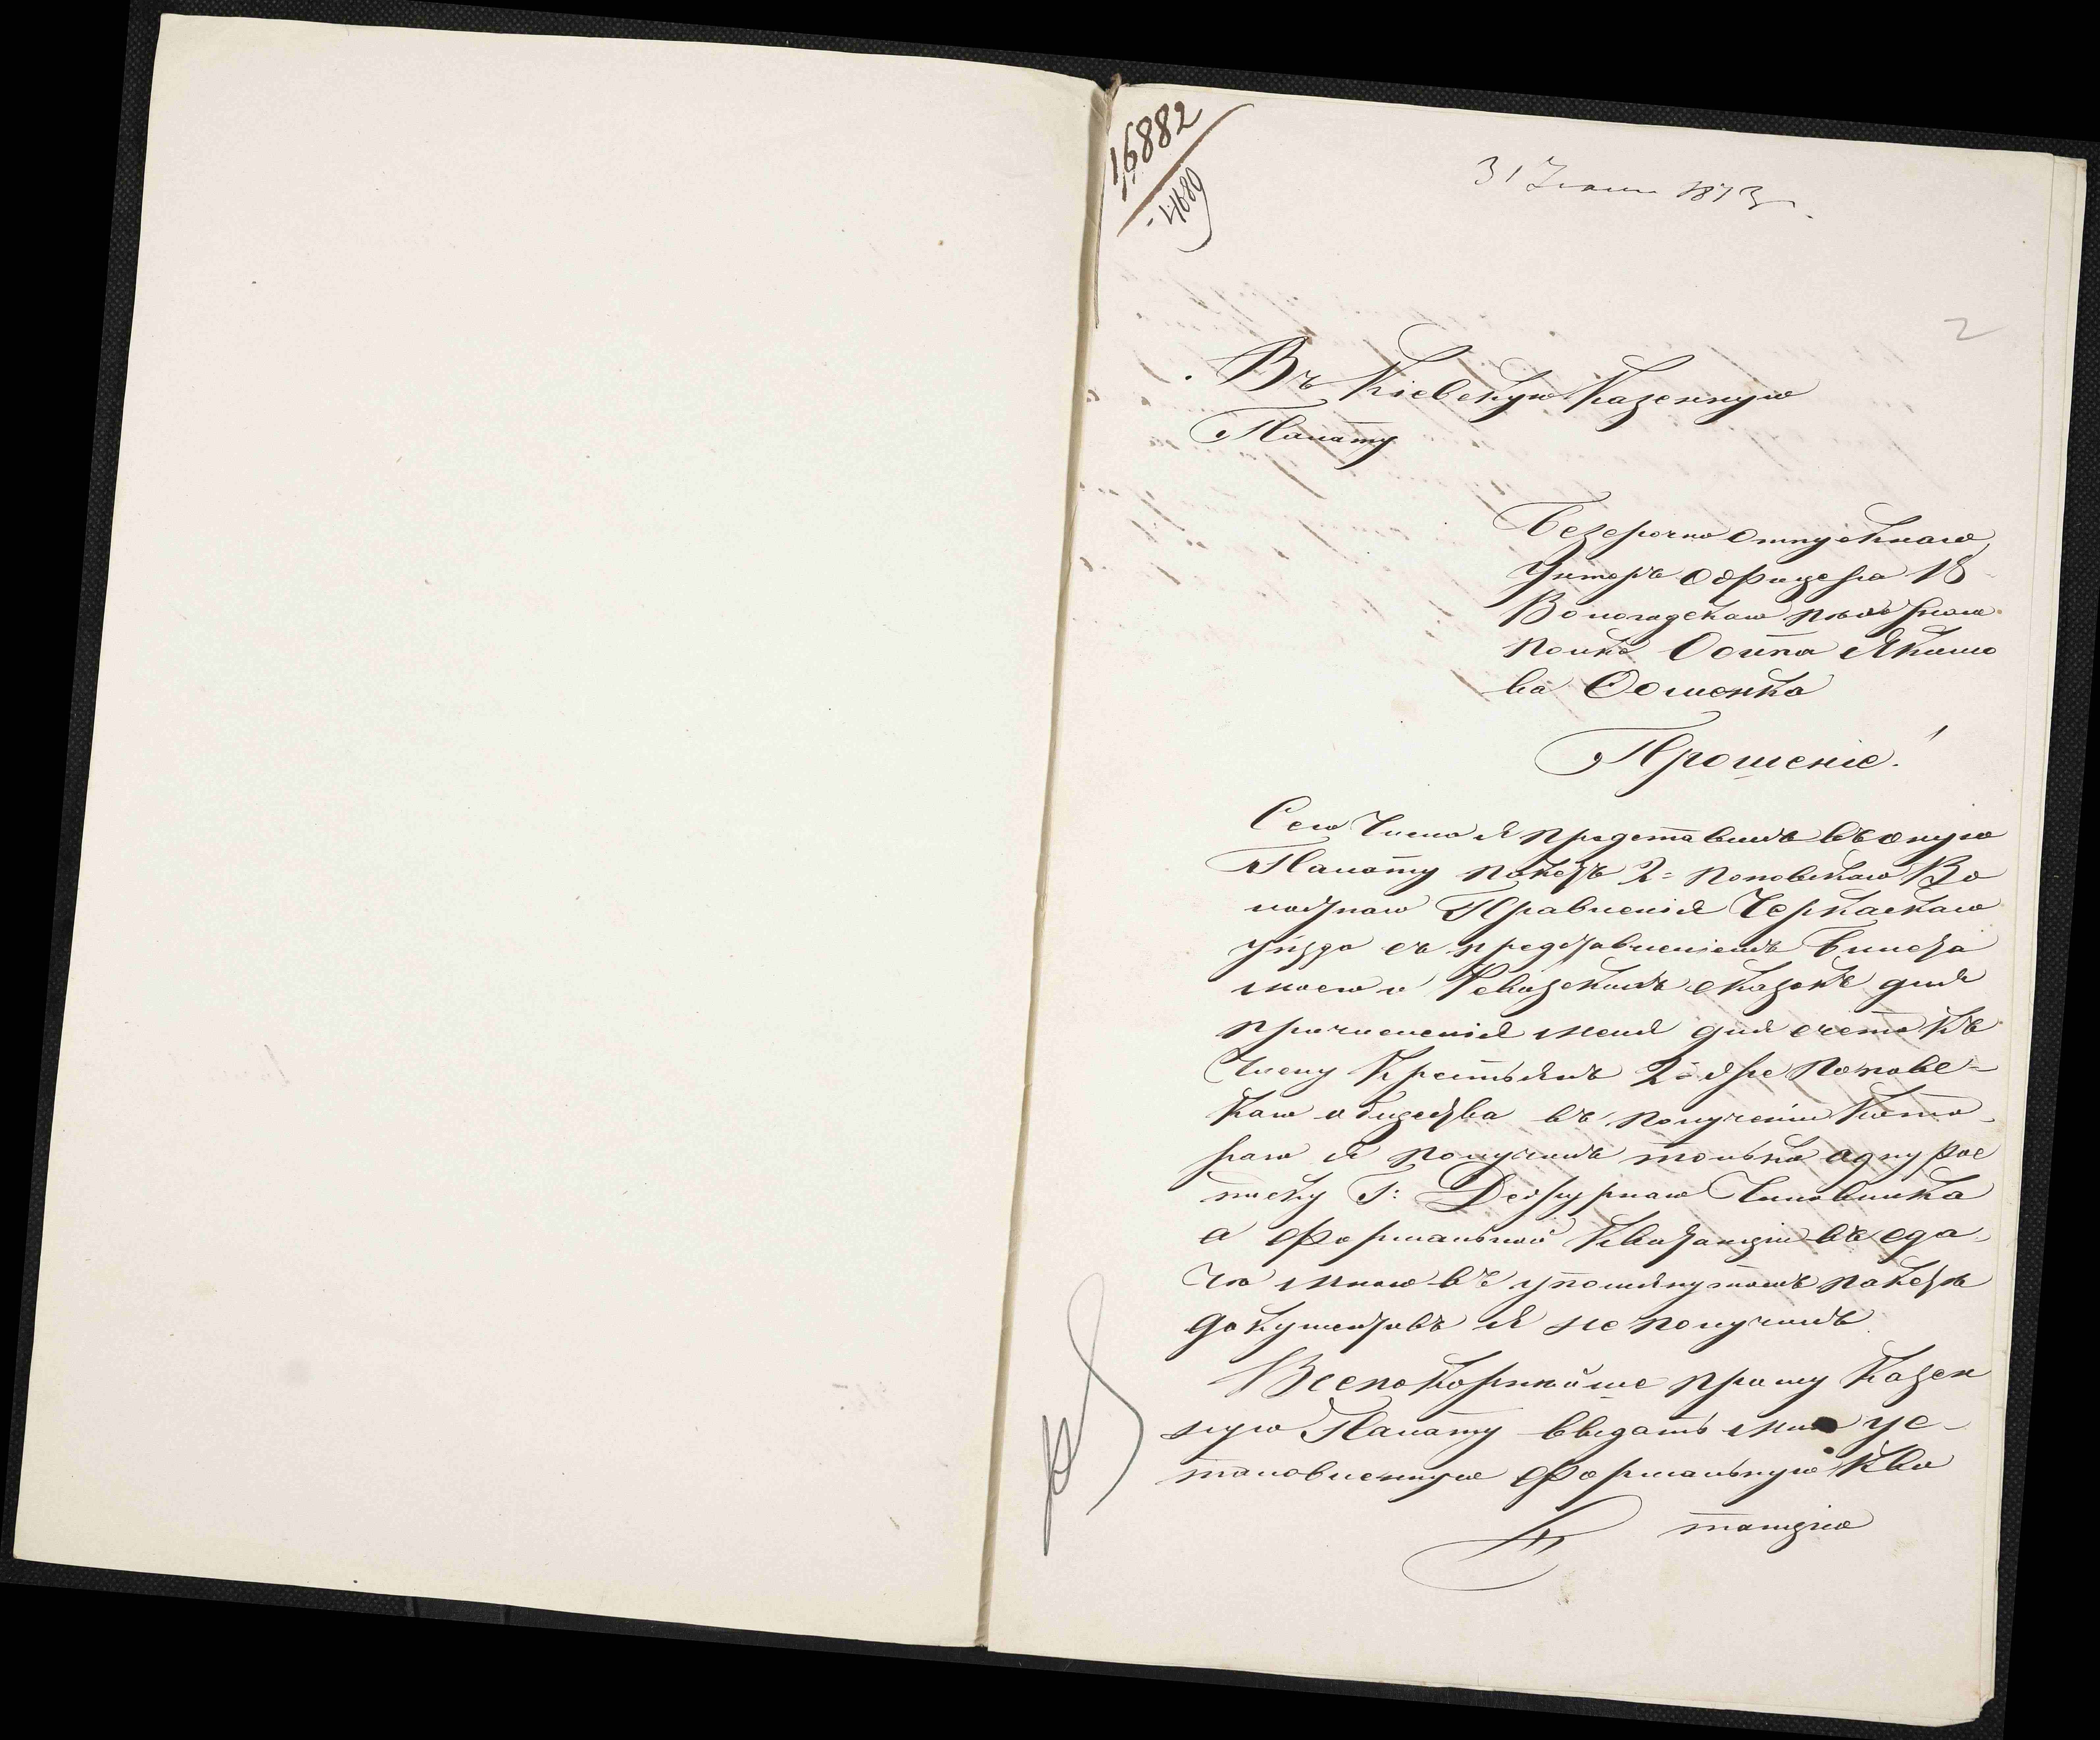 16882
4689
31 1873
2
Въ Кіевскую Казенную
Палату
Безсрочно отпускнаго
Унтеръ Офицера 18
Вологодскаго пѣхотнаго
полка Осипа Якимо
ва
Прошеніе!
Сего Числа я представилъ въ оную
Палату пакетъ 2: Во
лостнаго Правленія Черкаскаго
уѣзда съ представленіемъ билета
моего и Ревизскихъ сказокъ для
причисленія меня для счета къ
Крестьянъ 2
каго общества въ полученіи кото
раго я получилъ только одну рос
писку Г: Дежурнаго Чиновника
а формальной Квитанціи въ сда
чѣ мною въ упомянутомъ пакетѣ
документовъ я не получилъ
Всепокорнѣйше прошу Казен
ную Палату выдать мнѣ ус-
тановленную формальную Кви
танцію